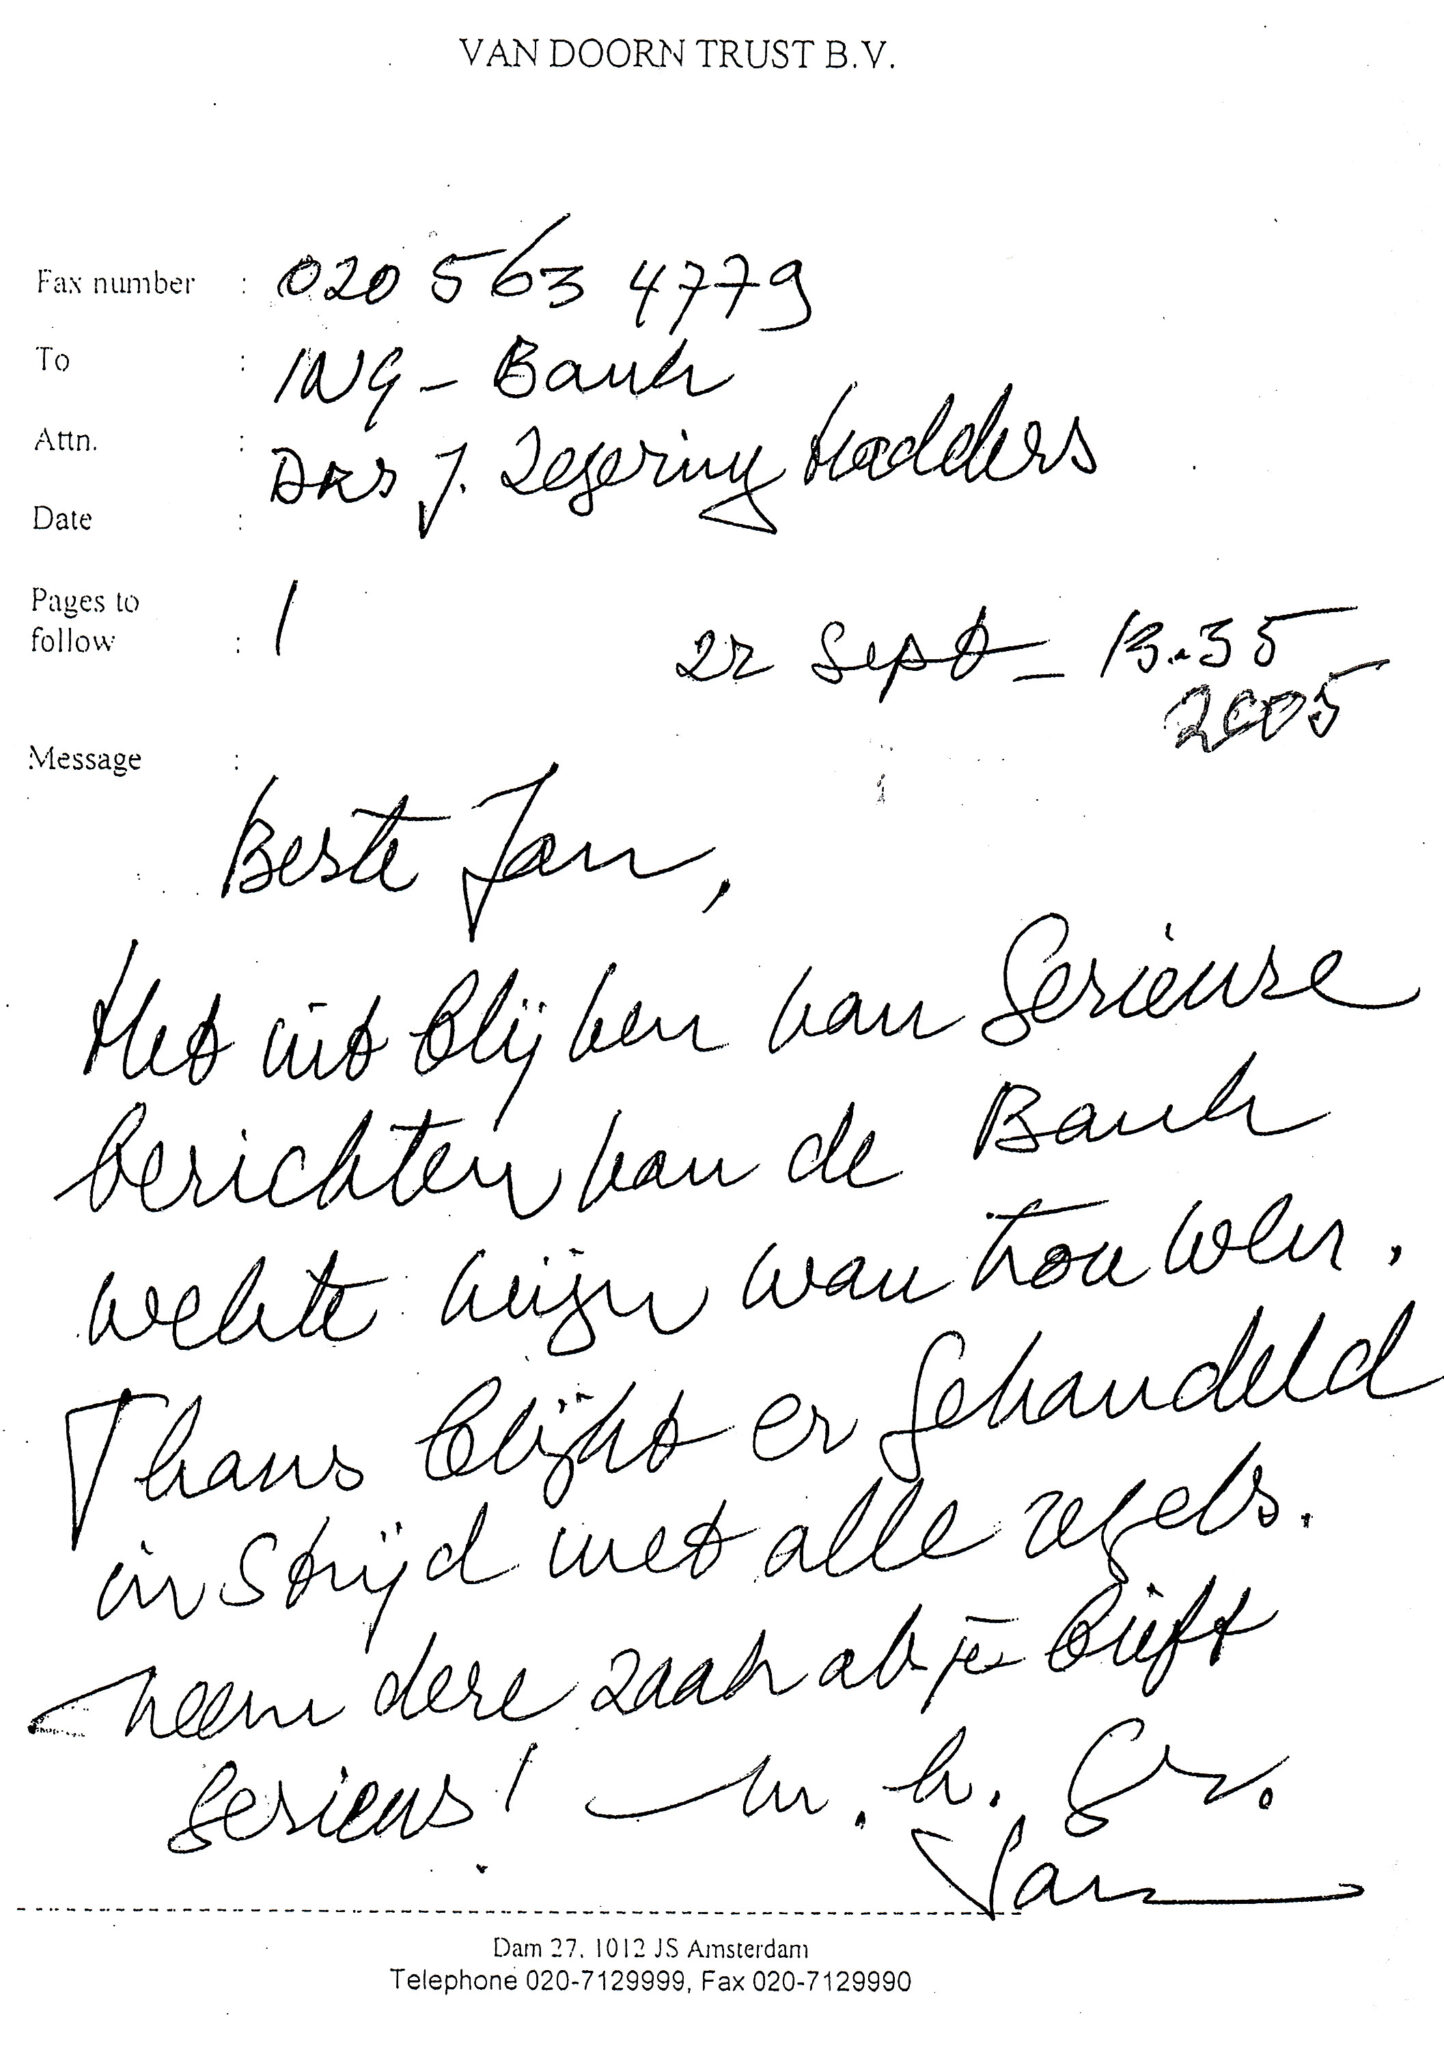 VAN DOORN TRUST B.V.
Fax number : 020 563 4779
To : ING - Bank
Attn. : Drs J. Zegering Hadders
Date :
Pages to
follow : 1
22 Sept - 13.35
2005
Message :
Beste Jan,
Het uit blijven van Serieuze
berichten van de Bank
wekte mijn wantrouwen.
Thans blijkt er gehandeld
in strijd met alle regels.
Neem deze zaak als je blieft
serieus! m. h. gr.
Jan
Dam 27, 1012 JS Amsterdam
Telephone 020-7129999, Fax 020-7129990